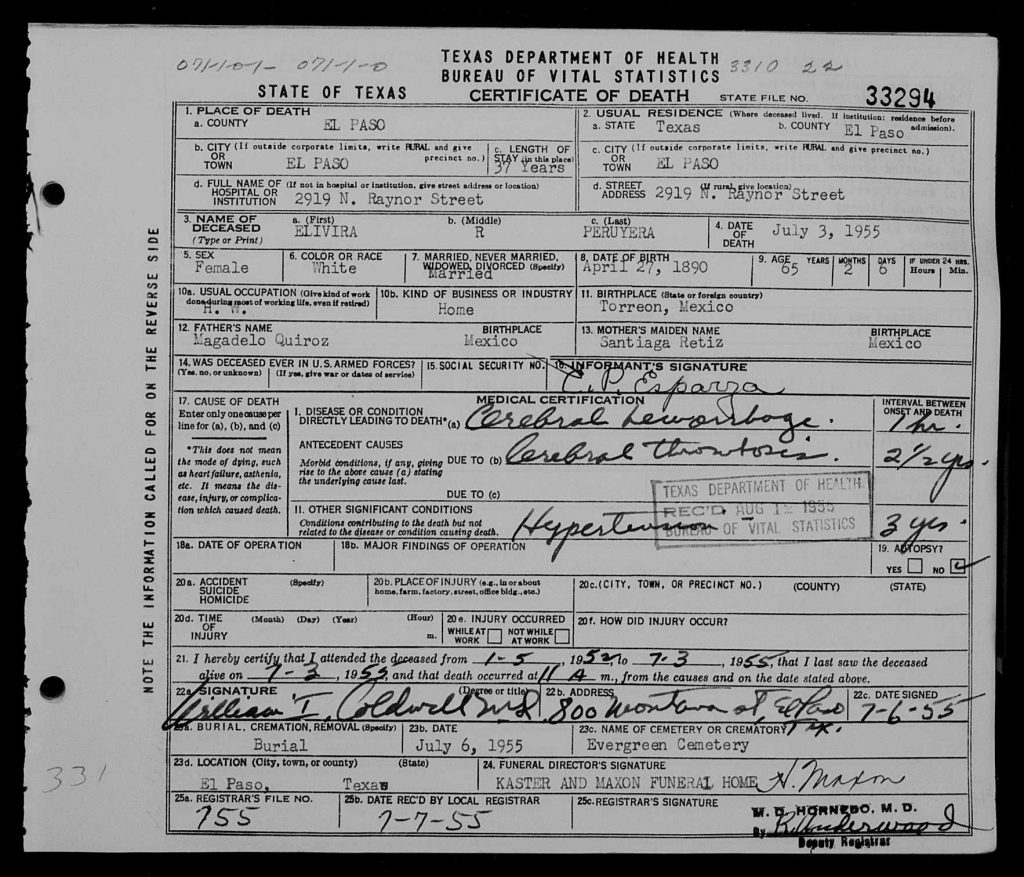 071-101- 071-1-0
TEXAS DEPARTMENT OF HEALTH
BUREAU OF VITAL STATISTICS
3310 22
STATE OF TEXAS CERTIFICATE OF DEATH STATE FILE NO. 33294
1. PLACE OF DEATH
a. COUNTY EL PASO
2. USUAL RESIDENCE (Where deceased lived. If institution: residence before admission).
a. STATE Texas b. COUNTY El Paso
b. CITY (If outside corporate limits, write RURAL and give precinct no.)
OR
TOWN EL PASO
c. LENGTH OF STAY (in this place)
37 Years
c. CITY (If outside corporate limits, write RURAL and give precinct no.)
OR
TOWN EL PASO
d. FULL NAME OF (If not in hospital or institution, give street address or location)
HOSPITAL OR
INSTITUTION 2919 N. Raynor Street
d. STREET (If rural, give location)
ADDRESS 2919 N. Raynor Street
3. NAME OF DECEASED
(Type or Print)
a. (First) ELIVIRA
b. (Middle) R
c. (Last) PERUYERA
4. DATE OF DEATH July 3, 1955
5. SEX
Female
6. COLOR OR RACE
White
7. MARRIED, NEVER MARRIED, WIDOWED, DIVORCED (Specify)
Married
8. DATE OF BIRTH
April 27, 1890
9. AGE YEARS MONTHS DAYS IF UNDER 24 HRS. Hours Min.
65 2 6
10a. USUAL OCCUPATION (Give kind of work done during most of working life, even if retired)
H. W.
10b. KIND OF BUSINESS OR INDUSTRY
Home
11. BIRTHPLACE (State or foreign country)
Torreon, Mexico
12. FATHER'S NAME BIRTHPLACE
Magadelo Quiroz Mexico
13. MOTHER'S MAIDEN NAME BIRTHPLACE
Santiaga Retiz Mexico
14. WAS DECEASED EVER IN U.S. ARMED FORCES?
(Yes, no, or unknown) (If yes, give war or dates of service)
15. SOCIAL SECURITY NO.
16. INFORMANT'S SIGNATURE
E. P. Esparza
17. CAUSE OF DEATH
Enter only one cause per line for (a), (b), and (c)
*This does not mean the mode of dying, such as heart failure, asthenia, etc. It means the disease, injury, or complication which caused death.
MEDICAL CERTIFICATION
INTERVAL BETWEEN ONSET AND DEATH
I. DISEASE OR CONDITION
DIRECTLY LEADING TO DEATH* (a) Cerebral hemorrhage. 1 hr.
ANTECEDENT CAUSES
Morbid conditions, if any, giving rise to the above cause (a) stating the underlying cause last.
DUE TO (b) Cerebral thrombosis. 2 1/2 yrs.
DUE TO (c)
TEXAS DEPARTMENT OF HEALTH
REC'D AUG 12 1955
BUREAU OF VITAL STATISTICS
II. OTHER SIGNIFICANT CONDITIONS
Conditions contributing to the death but not related to the disease or condition causing death.
Hypertension - 3 yrs.
18a. DATE OF OPERATION
18b. MAJOR FINDINGS OF OPERATION
19. AUTOPSY?
YES NO
20a. ACCIDENT (Specify)
SUICIDE
HOMICIDE
20b. PLACE OF INJURY (e.g., in or about home, farm, factory, street, office bldg., etc.)
20c. (CITY, TOWN, OR PRECINCT NO.) (COUNTY) (STATE)
20d. TIME (Month) (Day) (Year) (Hour)
OF
INJURY m.
20e. INJURY OCCURRED
WHILE AT WORK NOT WHILE AT WORK
20f. HOW DID INJURY OCCUR?
21. I hereby certify that I attended the deceased from 1-5, 1952, to 7-3, 1955, that I last saw the deceased
alive on 7-3, 1955, and that death occurred at 11 A m., from the causes and on the date stated above.
22a. SIGNATURE (Degree or title)
William I. Coldwell M.D.
22b. ADDRESS
800 Montana st, El Paso Tex.
22c. DATE SIGNED
7-6-55
23a. BURIAL, CREMATION, REMOVAL (Specify)
Burial
23b. DATE
July 6, 1955
23c. NAME OF CEMETERY OR CREMATORY
Evergreen Cemetery
23d. LOCATION (City, town, or county) (State)
El Paso, Texas
24. FUNERAL DIRECTOR'S SIGNATURE
KASTER AND MAXON FUNERAL HOME H. Maxon
25a. REGISTRAR'S FILE NO.
755
25b. DATE REC'D BY LOCAL REGISTRAR
7-7-55
25c. REGISTRAR'S SIGNATURE
M. D. HORNEDO, M. D.
By R. Underwood
Deputy Registrar
NOTE THE INFORMATION CALLED FOR ON THE REVERSE SIDE
331